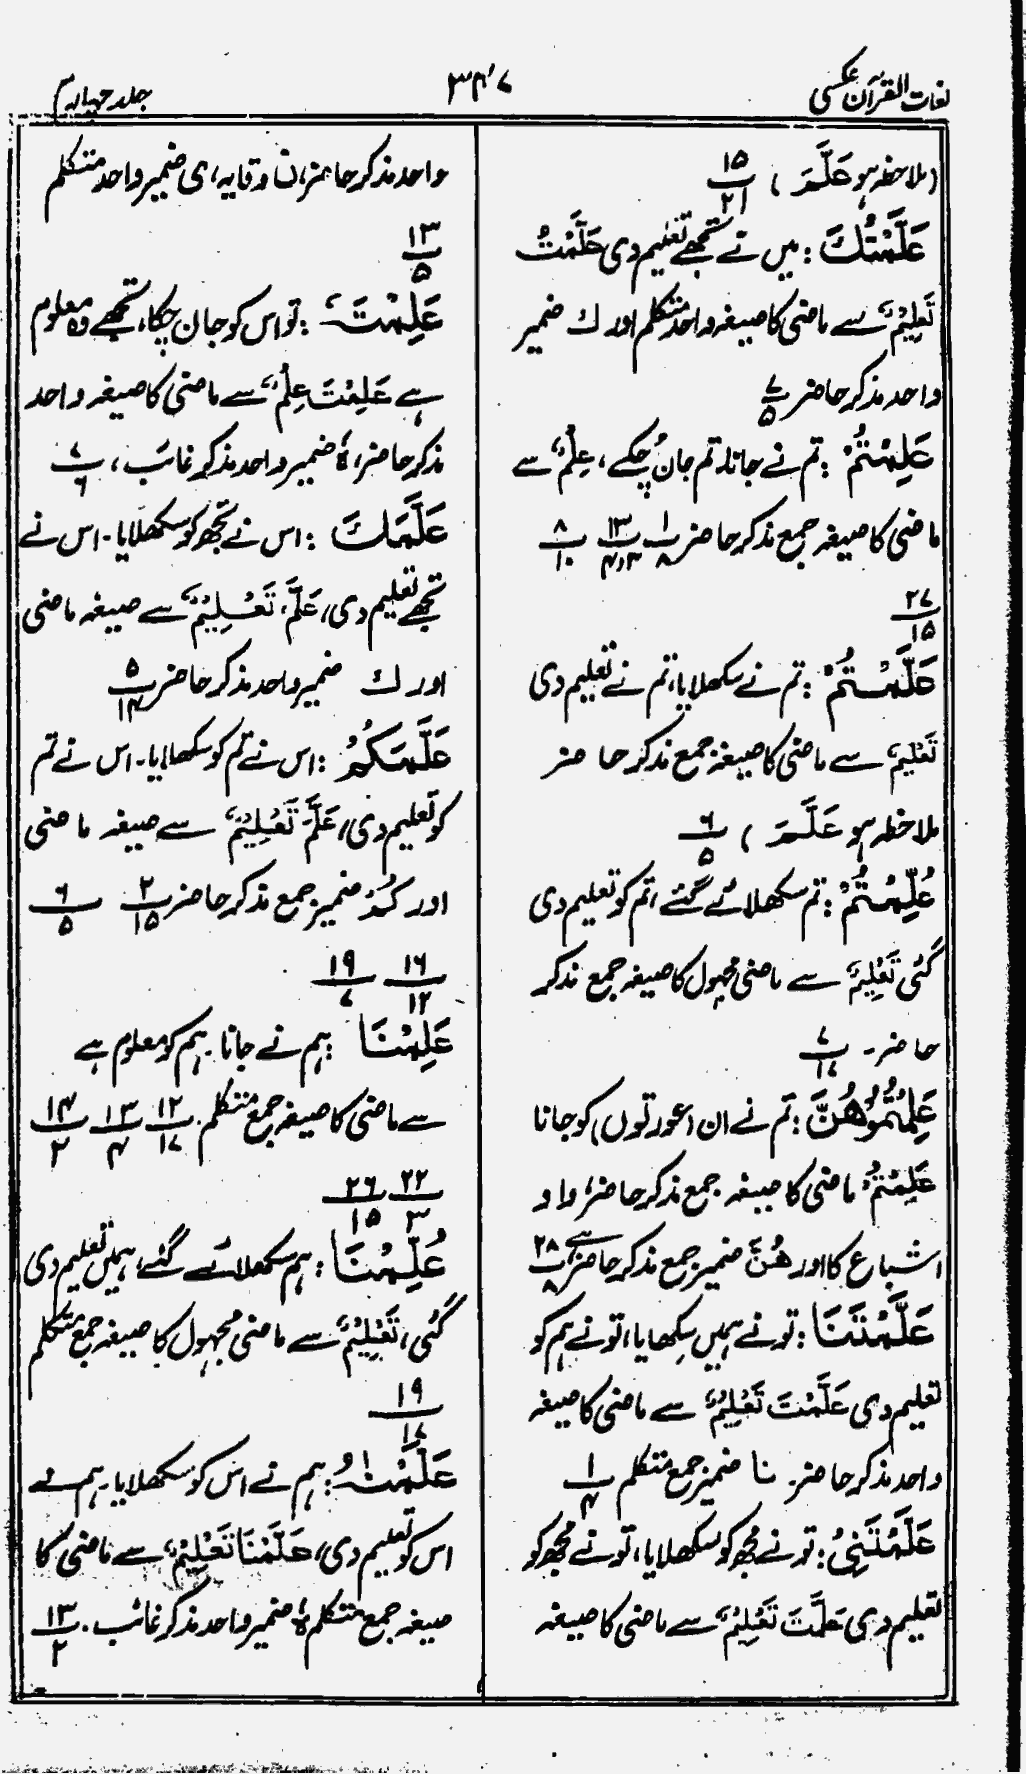 لغات القرآن عکسی
۳۴۷
جلد چہارم
(ملاحظہ ہو عَلَّمَ) ۱۵/۲۱
عَلَّمْتُكَ : میں نے تجھے تعلیم دی عَلَّمْتُ
تَعْلِیْمٌ سے ماضی کا صیغہ واحد متکلم اور ك ضمیر
واحد مذکر حاضر ۷/۵
عَلِمْتُمْ : تم نے جانا، تم جان چکے، عِلْمٌ سے
ماضی کا صیغہ جمع مذکر حاضر ۱/۸ ۱۳/۳،۴ ۸/۱۰
۲۷/۱۵
عَلَّمْتُمْ : تم نے سکھلایا، تم نے تعلیم دی
تَعْلِیْمٌ سے ماضی کا صیغہ جمع مذکر حاضر
ملاحظہ ہو عَلَّمَ ) ۶/۵
عُلِّمْتُمْ : تم سکھلائے گئے، تم کو تعلیم دی
گئی تَعْلِیْمٌ سے ماضی مجہول کا صیغہ جمع مذکر
حاضر۔ ۷/۱۷
عَلِمْتُمُوْهُنَّ : تم نے ان (عورتوں) کو جانا
عَلِمْتُمْ ماضی کا صیغہ جمع مذکر حاضر، واو
اشباع کا اور هُنَّ ضمیر جمع مذکر حاضر ہے ۲۸/۸
عَلَّمْتَنَا : تو نے ہمیں سکھایا، تو نے ہم کو
تعلیم دی عَلَّمْتَ تَعْلِیْمٌ سے ماضی کا صیغہ
واحد مذکر حاضر۔ نا ضمیر جمع متکلم ۱/۴
عَلَّمْتَنِیْ : تو نے مجھ کو سکھلایا، تو نے مجھ کو
تعلیم دی عَلَّمْتَ تَعْلِیْمٌ سے ماضی کا صیغہ
واحد مذکر حاضر، ن وقایہ، ی ضمیر واحد متکلم
۱۳/۵
عَلِمْتَہٗ : تو اس کو جان چکا، تجھے وہ معلوم
ہے عَلِمْتَ عِلْمٌ سے ماضی کا صیغہ واحد
مذکر حاضر، ہٗ ضمیر واحد مذکر غائب، ۷/۶
عَلَّمَكَ : اس نے تجھ کو سکھلایا۔ اس نے
تجھے تعلیم دی، عَلَّمَ، تَعْلِیْمٌ سے صیغہ ماضی
اور ك ضمیر واحد مذکر حاضر ۵/۱۴
عَلَّمَكُمُ : اس نے تم کو سکھلایا۔ اس نے تم
کو تعلیم دی، عَلَّمَ تَعْلِیْمٌ سے صیغہ ماضی
اور كُمْ ضمیر جمع مذکر حاضر ۲/۱۵ ۶/۵
۱۶/۱۲ ۱۹/۷
عَلِمْنَا : ہم نے جانا۔ ہم کو معلوم ہے
سے ماضی کا صیغہ جمع متکلم۔ ۱۲/۱۷ ۱۳/۴ ۱۴/۲
۲۲/۳ ۲۶/۱۵
عُلِّمْنَا : ہم سکھلائے گئے، ہمیں تعلیم دی
گئی، تَعْلِیْمٌ سے ماضی مجہول کا صیغہ جمع متکلم
۱۹/۱۷
عَلَّمْنٰہُ : ہم نے اس کو سکھلایا۔ ہم نے
اس کو تعلیم دی، عَلَّمْنَا تَعْلِیْمٌ سے ماضی کا
صیغہ جمع متکلم ہٗ ضمیر واحد مذکر غائب۔ ۱۳/۲